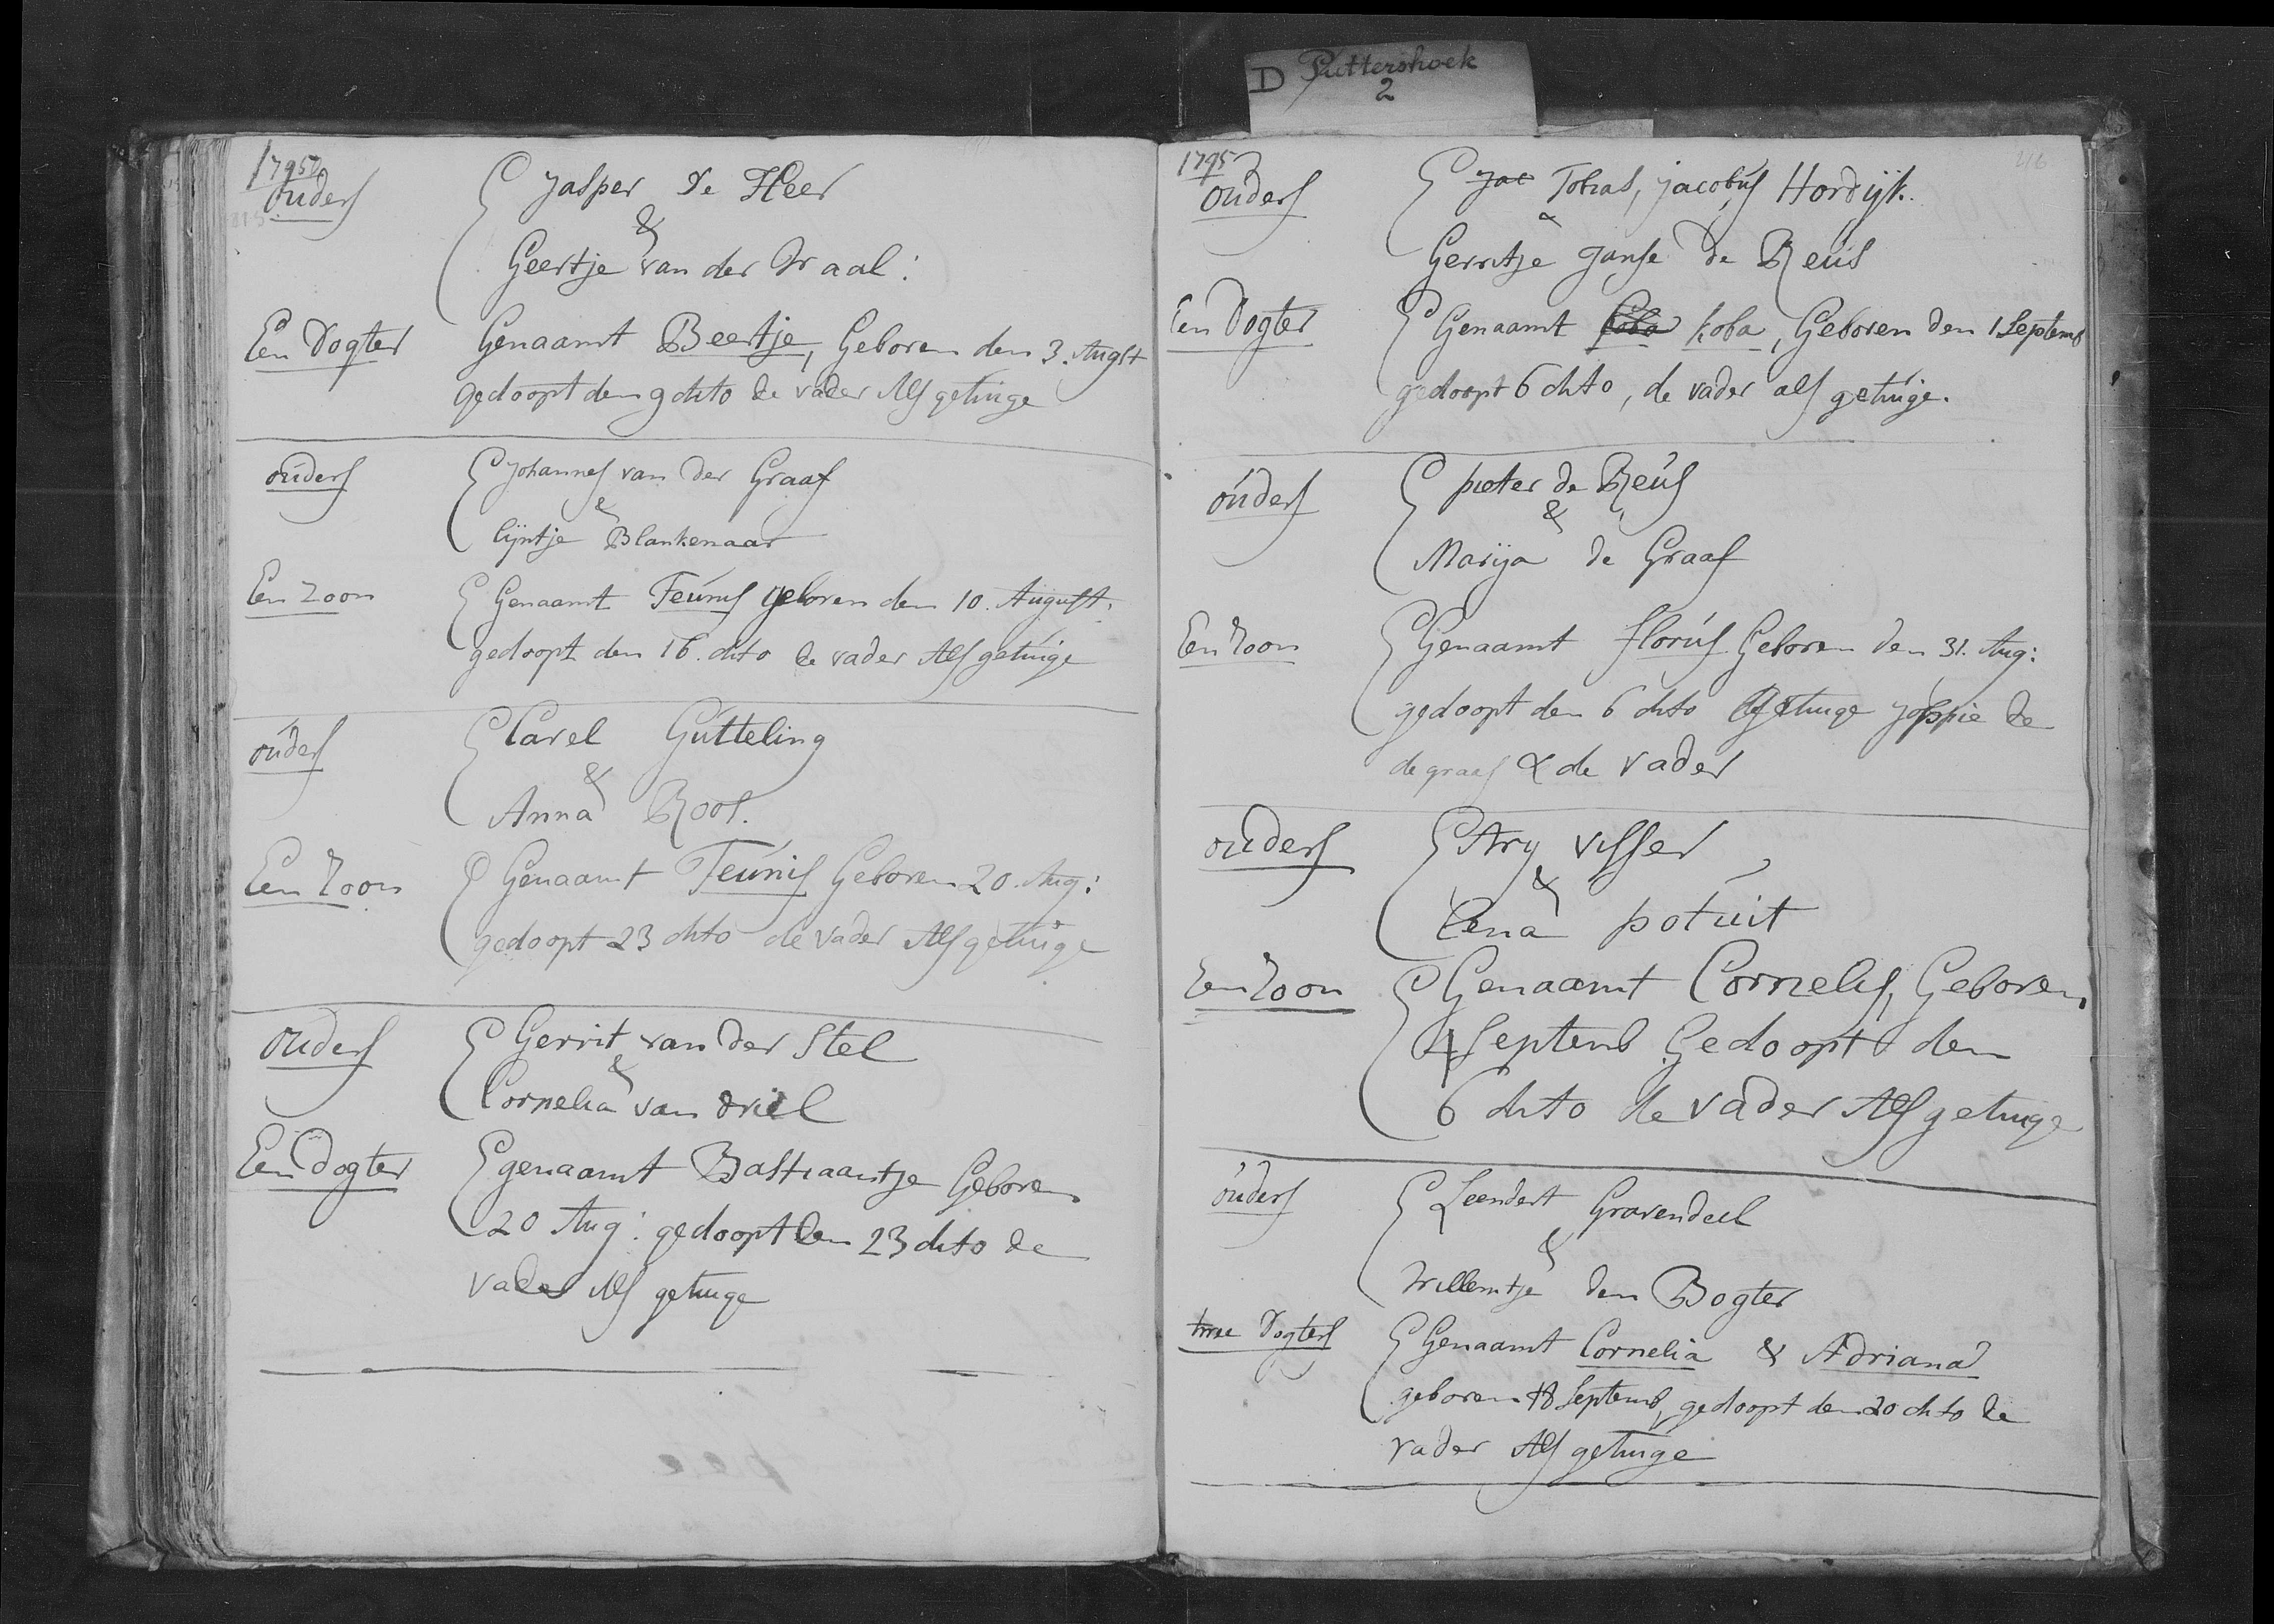 D Puttershoek
2
1795
ouders
Jasper de Heer
&
Geertje van der Waal:
Een Dogter
Genaamt Beertje, Geboren den 3. Augst
gedoopt den 9 dito de vader Als getuige
ouders
Johannes van der Graaf
&
lijntje Blankenaar
Een zoon
Genaamt Teunis geboren den 10. August.
gedoopt den 16. dito de vader Als getuige
ouders
Carel Gutteling
&
Anna Roos.
Een Zoon
Genaamt Teunis Geboren 20. Aug:
gedoopt 23 dito de vader Als getuige
ouders
Gerrit van der Stel
&
Cornelia van driel
Een Dogter
genaamt Bastiaantje Geboren
20 Aug: gedoopt den 23 dito de
vader Als getuige
1795
216
ouders
Jac Tobias, Jacobus Hordijk.
&
Gerritje Janse de Reus
Een Dogter
Genaamt Coba Koba, Geboren den 1 Septemb
gedoopt 6 dito, de vader als getuige.
ouders
pieter de Reus
&
Marija de Graaf
Een Zoon
Genaamt florus Geboren den 31. Aug:
gedoopt den 6 dito Getuige de
de graaf & de vader
ouders
Ary visser
&
Lena potuit
Een zoon
Genaamt Cornelis, Geboren
4 Septemb Gedoopt den
6 dito de vader Als getuige
ouders
Leendert Gravendeel
&
Willemtje den Bogter
twee Dogters
Genaamt Cornelia & Adriana
geboren 18 Septemb, gedoopt den 20 dito de
vader Als getuige